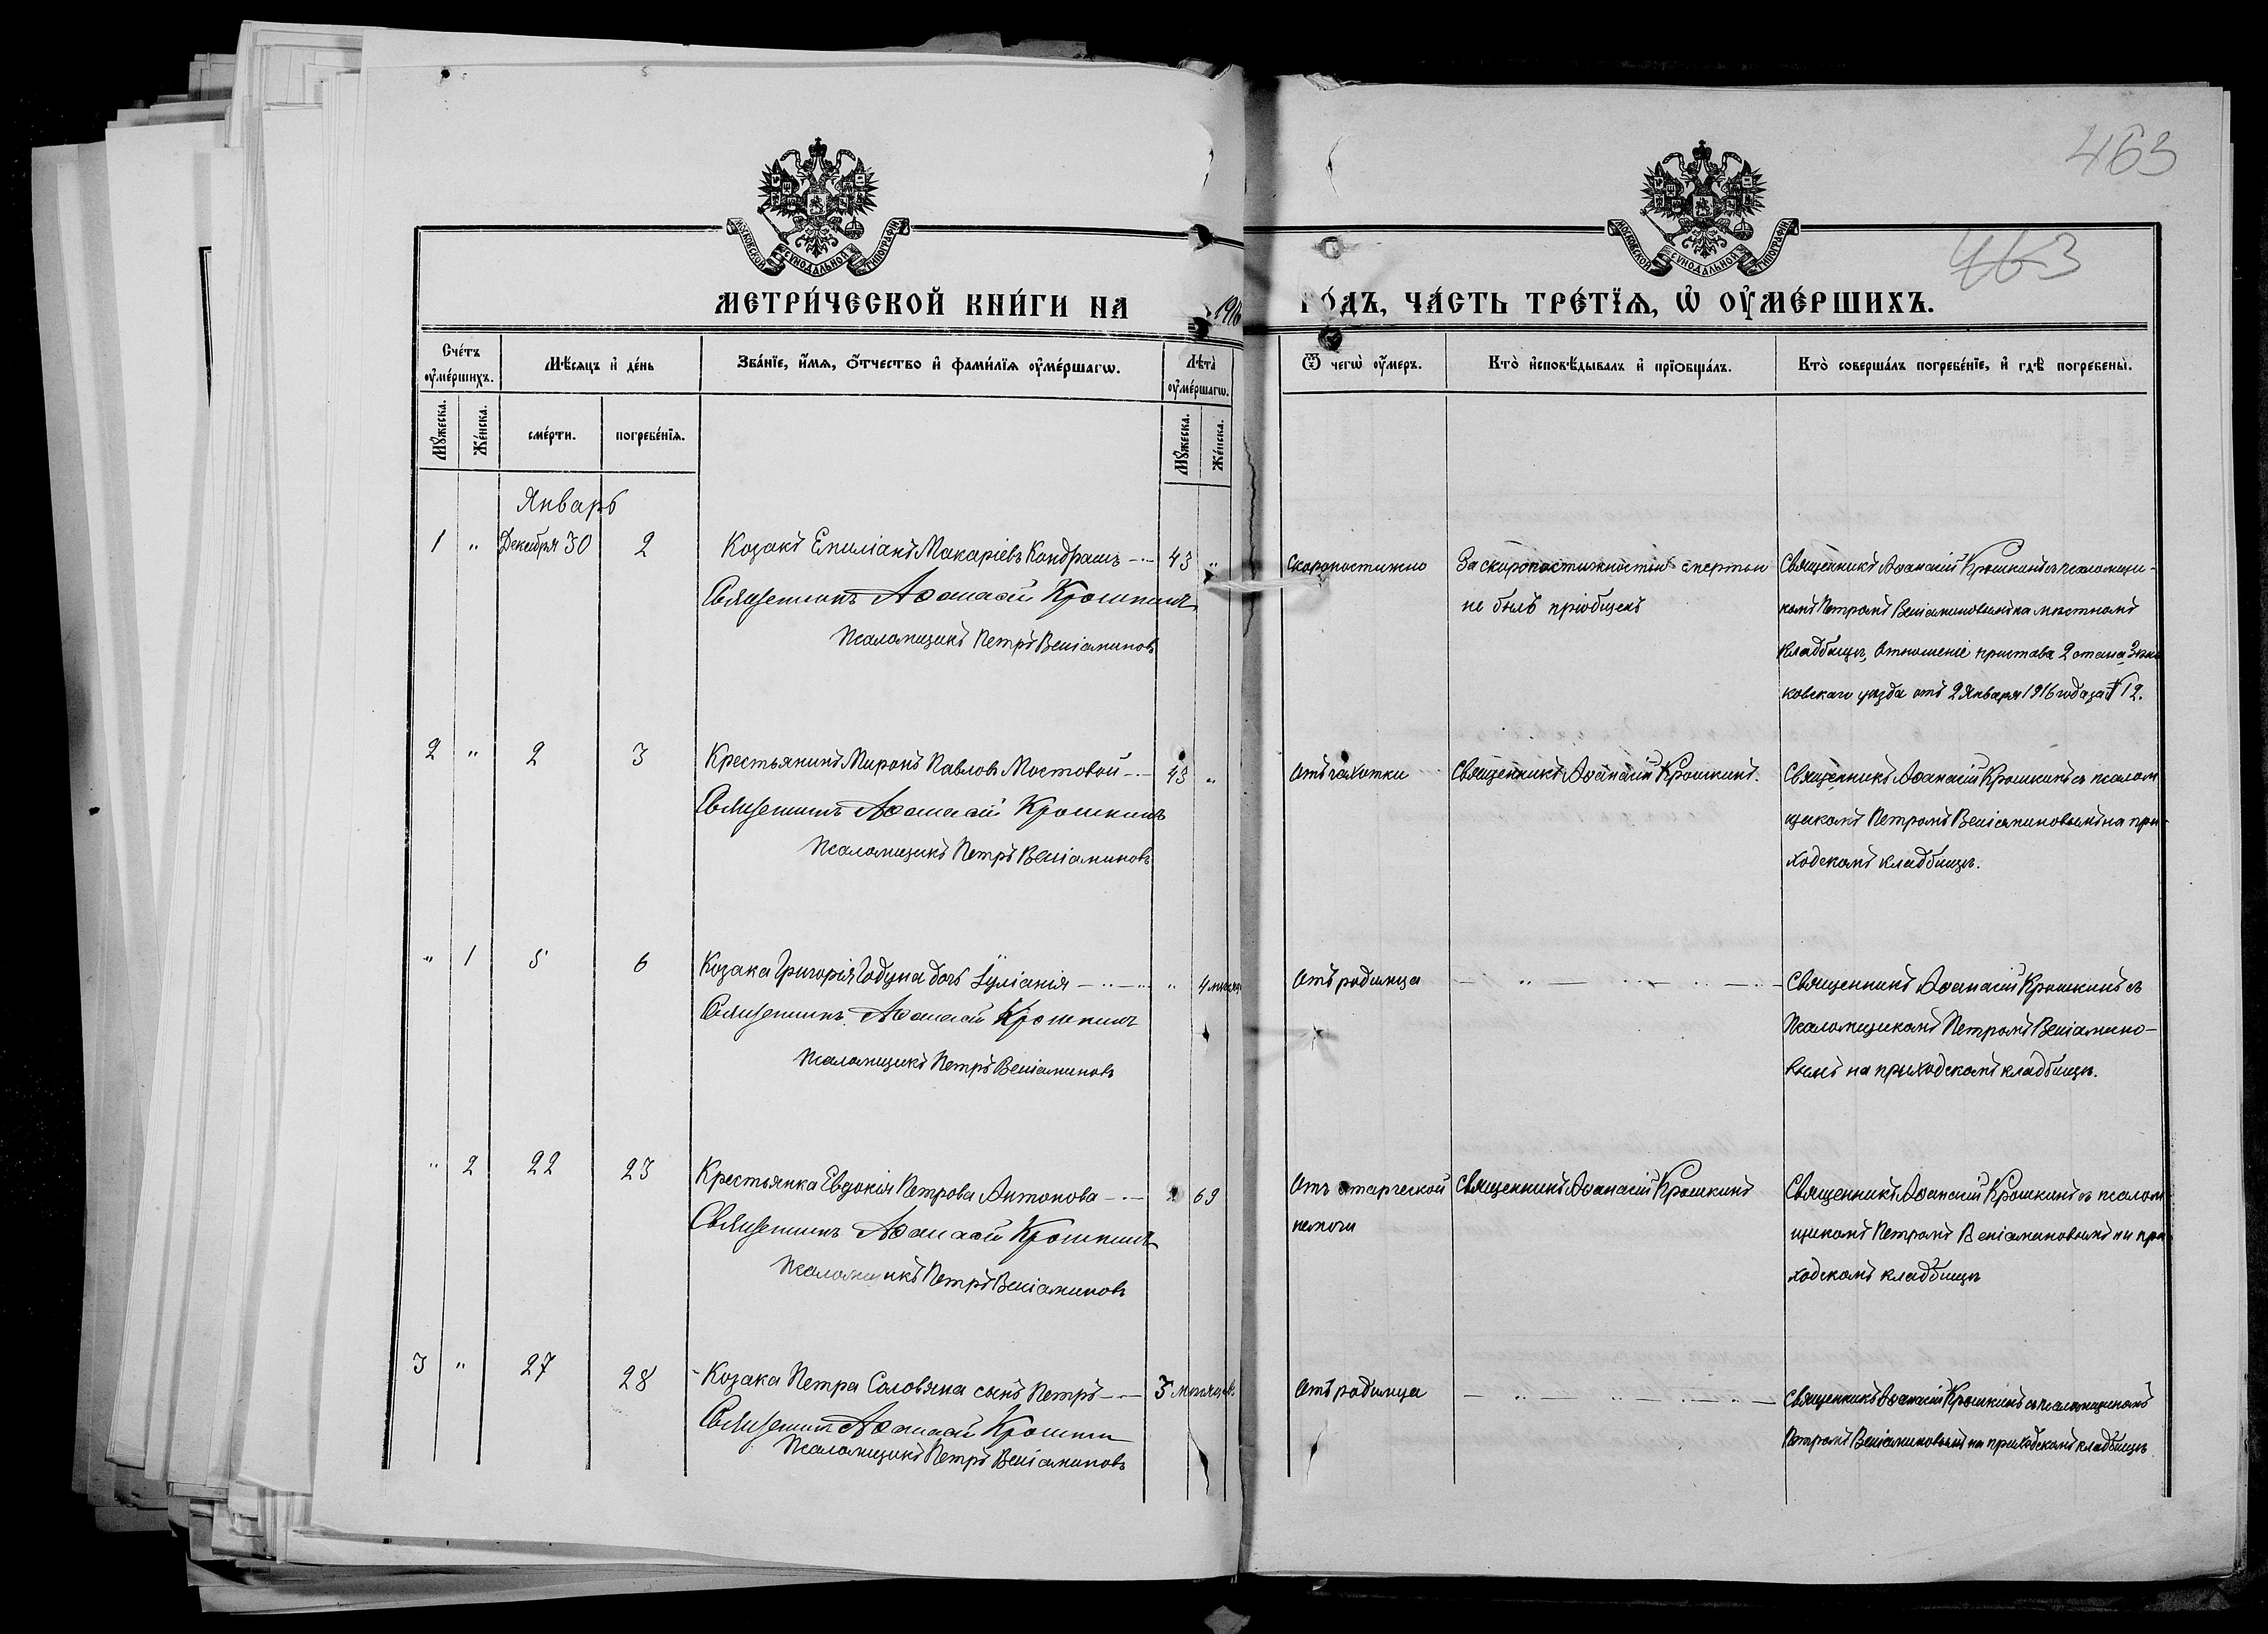 463
463
МОСКОВСКОЙ СѴНОДАЛЬНОЙ ТИПОГРАФІИ
МОСКОВСКОЙ СѴНОДАЛЬНОЙ ТИПОГРАФІИ
МЕТРИ́ЧЕСКОЙ КНИ́ГИ НА 1916 ГО́ДЪ, ЧА́СТЬ ТРЕ́ТЇѦ, Ѡ҆ ОУ҆МЕ́РШИХЪ.
Сче́тъ оу҆ме́ршихъ.
Мꙋ́жеска.
Же́нска.
Мѣ́сѧцъ и҆ де́нь
сме́рти.
погребе́нїѧ.
Зва́нїе, и҆́мѧ, ѻ҆́тчество и҆ фами́лїѧ оу҆ме́ршагѡ.
Лѣ́та оу҆ме́ршагѡ.
Мꙋ́жеска.
Же́нска.
Ѿ чегѡ̀ оу҆́меръ.
Кто̀ и҆сповѣ́дывалъ и҆ прїѡбща́лъ.
Кто̀ соверша́лъ погребе́нїе, и҆ гдѣ̀ погребены̀.
Январь
1 " Декабря 30 2
Козакъ Емиліанъ Макаріевъ Кондрашъ 43 "
Священникъ Аѳанасій Крошкинъ
Псаломщикъ Петръ Веніаминовъ
Скоропостижно
За скоропостижностію смертью
не былъ пріобщенъ
Священникъ Аѳанасій Крошкинъ съ псаломщи-
комъ Петромъ Веніаминовымъ на мѣстномъ
кладбищѣ, Отношеніе пристава 2 стана Зѣнь
ковскаго уѣзда отъ 2 Января 1916 года за № 12.
2 " 2 3
Крестьянинъ Миронъ Павловъ Мостовой "
Священникъ Аѳанасій Крошкинъ
Псаломщикъ Петръ Веніаминовъ
Отъ чахотки
Священникъ Аѳанасій Крошкинъ.
Священникъ Аѳанасій Крошкинъ съ псалом
щикомъ Петромъ Веніаминовымъ на при-
ходскомъ кладбищѣ.
" 1 5 6
Козака Григорія Годуна дочь Іуліанія " 4 мѣсяц
Священникъ Аѳанасій Крошкинъ
Псаломщикъ Петръ Веніаминовъ
Отъ родимца
Священникъ Аѳанасій Крошкинъ съ
Псаломщикомъ Петромъ Веніамино-
вымъ на приходскомъ кладбищѣ.
" 2 22 23
Крестьянка Евдокія Петрова Антонова " 69
Священникъ Аѳанасій Крошкинъ
Псаломщикъ Петръ Веніаминовъ
Отъ старческой
немочи
Священникъ Аѳанасій Крошкинъ
Священникъ Аѳанасій Крошкинъ съ псалом
щикомъ Петромъ Веніаминовымъ на при
ходскомъ кладбищѣ
3 " 27 28
Козака Петра Соловяна сынъ Петръ 3 мѣсяцев
Священникъ Аѳанасій Крошкин
Псаломщикъ Петръ Веніаминовъ
Отъ родимца
Священникъ Аѳанасій Крошкинъ съ псаломщикомъ
Петромъ Веніаминовымъ на приходскомъ кладбищѣ